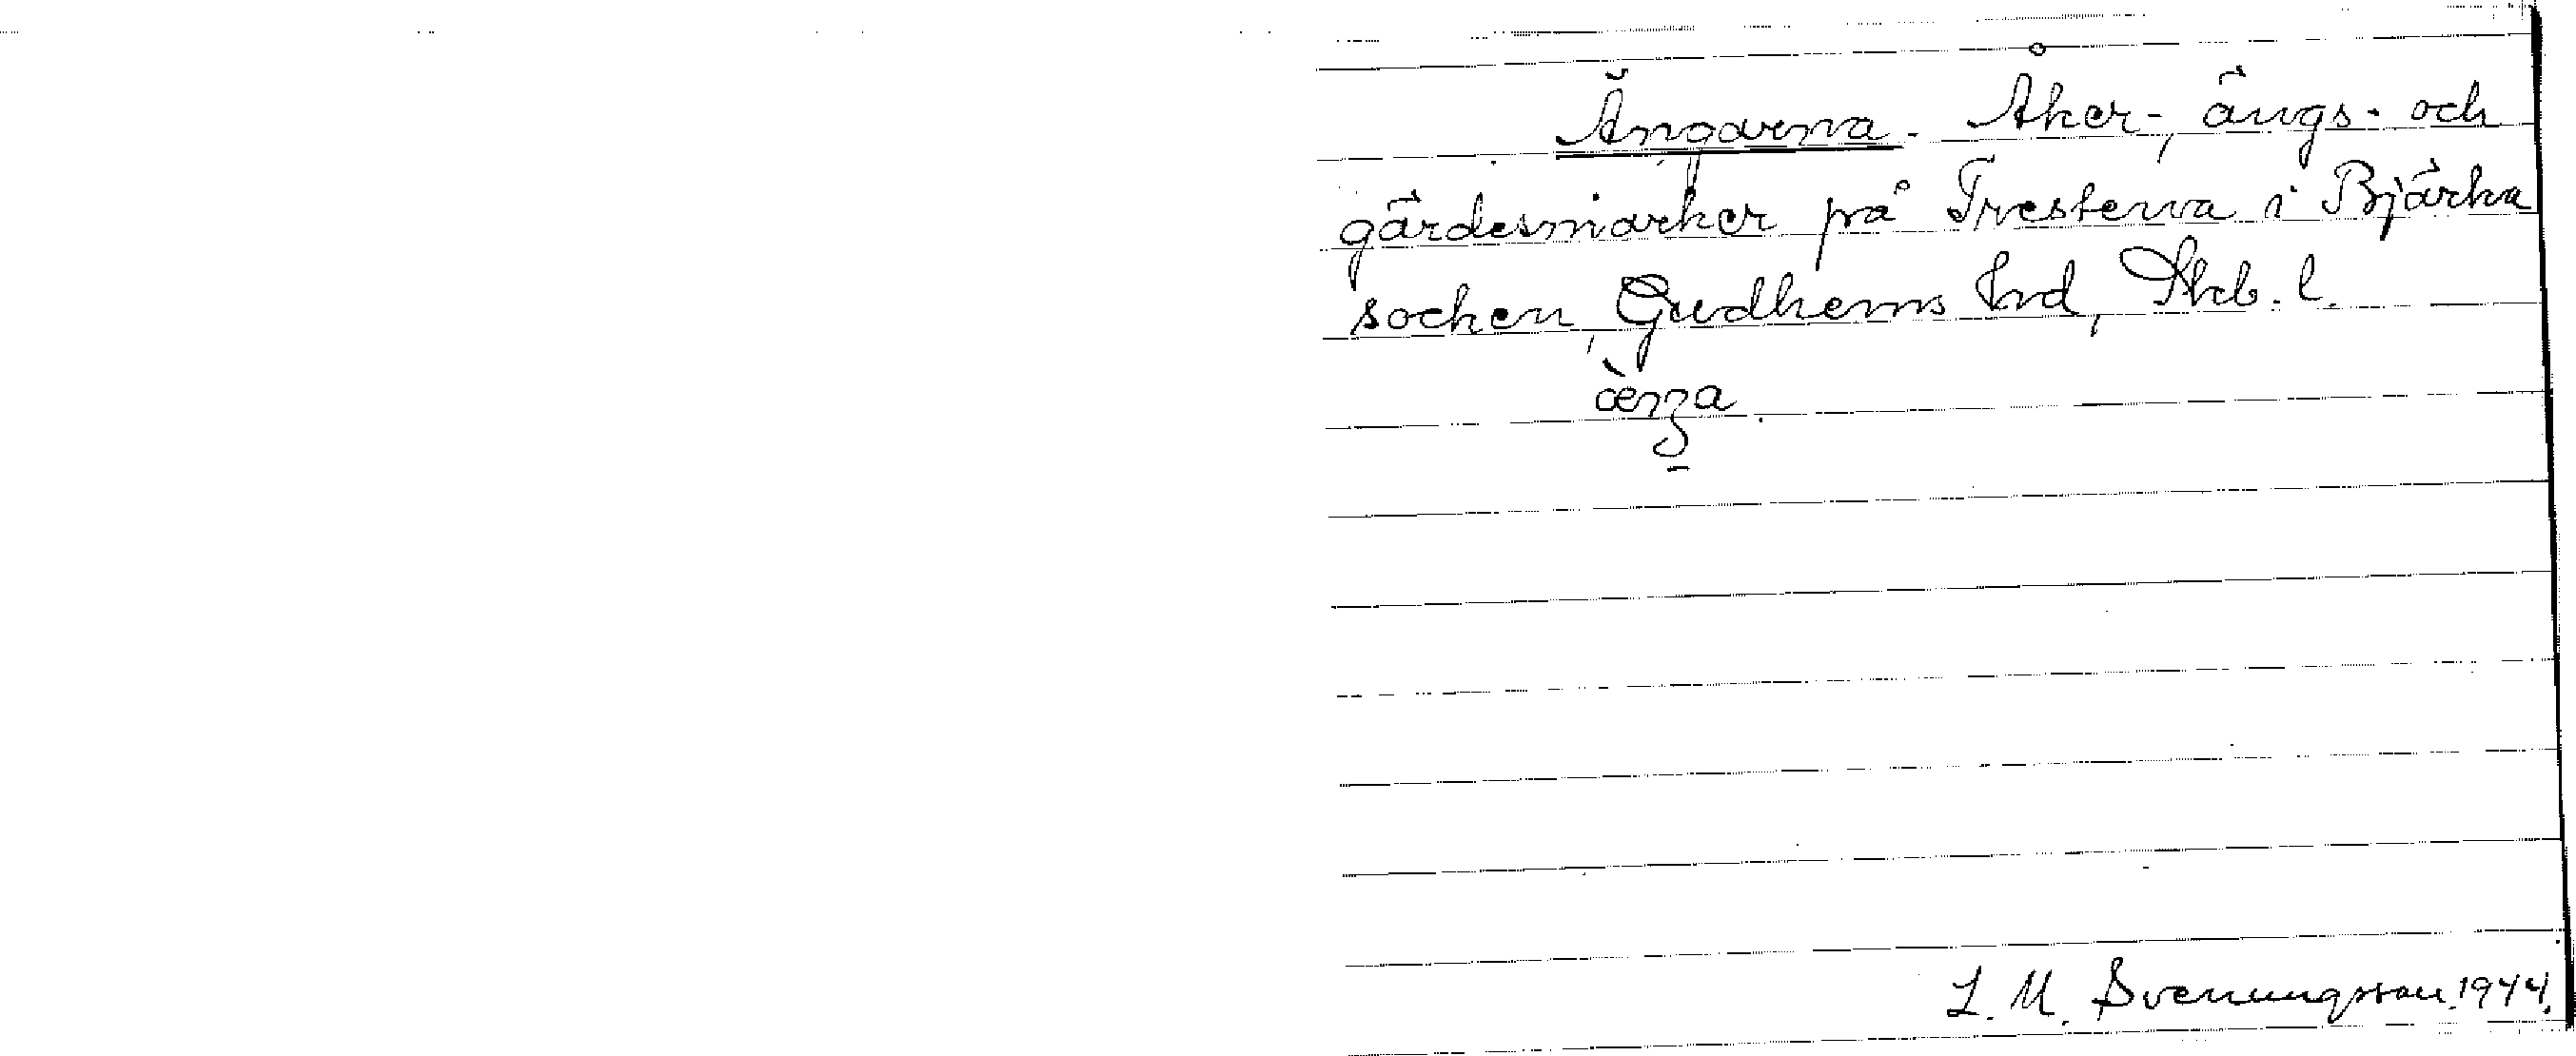 Ängarna. Åker-, ängs- och
gärdesmarker på Presterna i Bjärka
socken, Gudhems hrd, Skb. l.
L. M. Svenungsson. 1944.